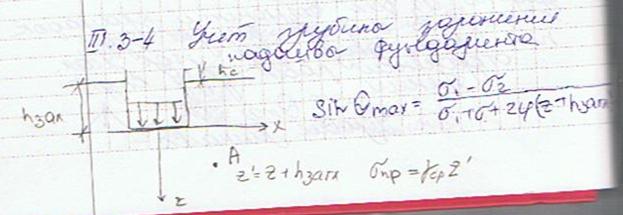 III. 3-4 Учет глубины заложения
подошвы фундамента
hс
hзал
x
sin Θmax = σ1 - σ2 / σ1 + σ + 2γ(z + hзагл
A
z' = z + hзагл σпр = γср z'
z